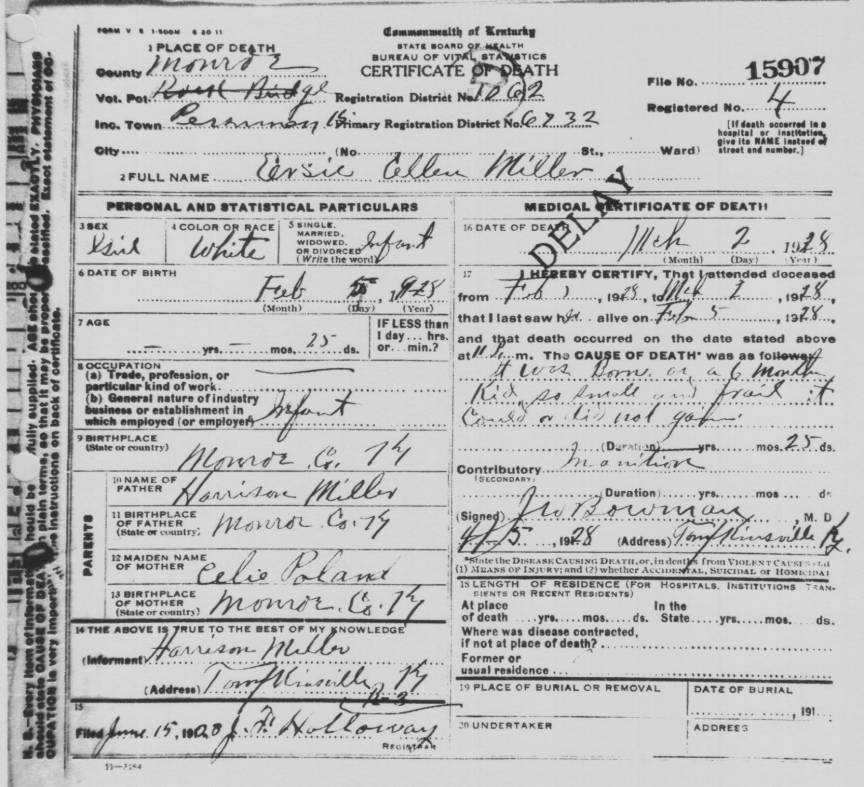 FORM V S 1-500M 6 20 11
Commonwealth of Kentucky
STATE BOARD OF HEALTH
BUREAU OF VITAL STATISTICS
CERTIFICATE OF DEATH
1 PLACE OF DEATH
County Monroe
File No. 15907
Vot. Pct. Registration District No. 1062
Registered No. 4
Inc. Town Primary Registration District No. 6732
[If death occurred in a hospital or institution, give its NAME instead of street and number.]
City (No. St., Ward)
2 FULL NAME Ersie Ellen Miller
DELAY
PERSONAL AND STATISTICAL PARTICULARS
3 SEX Girl
4 COLOR OR RACE White
5 SINGLE, MARRIED, WIDOWED, OR DIVORCED (Write the word) Infant
6 DATE OF BIRTH
Feb 5, 1928
(Month) (Day) (Year)
7 AGE
— yrs. — mos. 25 ds.
IF LESS than 1 day... hrs. or... min.?
8 OCCUPATION
(a) Trade, profession, or particular kind of work
(b) General nature of industry business or establishment in which employed (or employer) Infant
9 BIRTHPLACE
(State or country) Monroe Co. Ky
PARENTS
10 NAME OF FATHER Harrison Miller
11 BIRTHPLACE OF FATHER (State or country) Monroe Co. Ky
12 MAIDEN NAME OF MOTHER Celie Poland
13 BIRTHPLACE OF MOTHER (State or country) Monroe. Co. Ky
14 THE ABOVE IS TRUE TO THE BEST OF MY KNOWLEDGE
(Informant) Harrison Miller
(Address) Tompkinsville Ky
R-3
15
Filed June 15, 1928 J. F. Holloway
REGISTRAR
11—3184
MEDICAL CERTIFICATE OF DEATH
16 DATE OF DEATH Mch 2 1928
(Month) (Day) (Year)
17 I HEREBY CERTIFY, That I attended deceased
from Feb , 1928, to Mch 2, 1928,
that I last saw her alive on Feb 5, 1928,
and that death occurred on the date stated above
at m. The CAUSE OF DEATH* was as follows:
It was Born as a 6 months
Kid, so small and frail it
Could or did not gain
(Duration) yrs. mos. 25 ds.
Contributory Inanition
(SECONDARY)
(Duration) yrs. mos. ds.
(Signed) J W Bowman, M. D
5, 1928 (Address) Tompkinsville Ky.
*State the DISEASE CAUSING DEATH, or, in deaths from VIOLENT CAUSES
(1) MEANS OF INJURY; and (2) whether ACCIDENTAL, SUICIDAL or HOMICIDAL
18 LENGTH OF RESIDENCE (FOR HOSPITALS, INSTITUTIONS TRANSIENTS OR RECENT RESIDENTS)
At place of death yrs. mos. ds. In the State yrs. mos. ds.
Where was disease contracted, if not at place of death?
Former or usual residence
19 PLACE OF BURIAL OR REMOVAL
DATE OF BURIAL
, 191
20 UNDERTAKER
ADDRESS